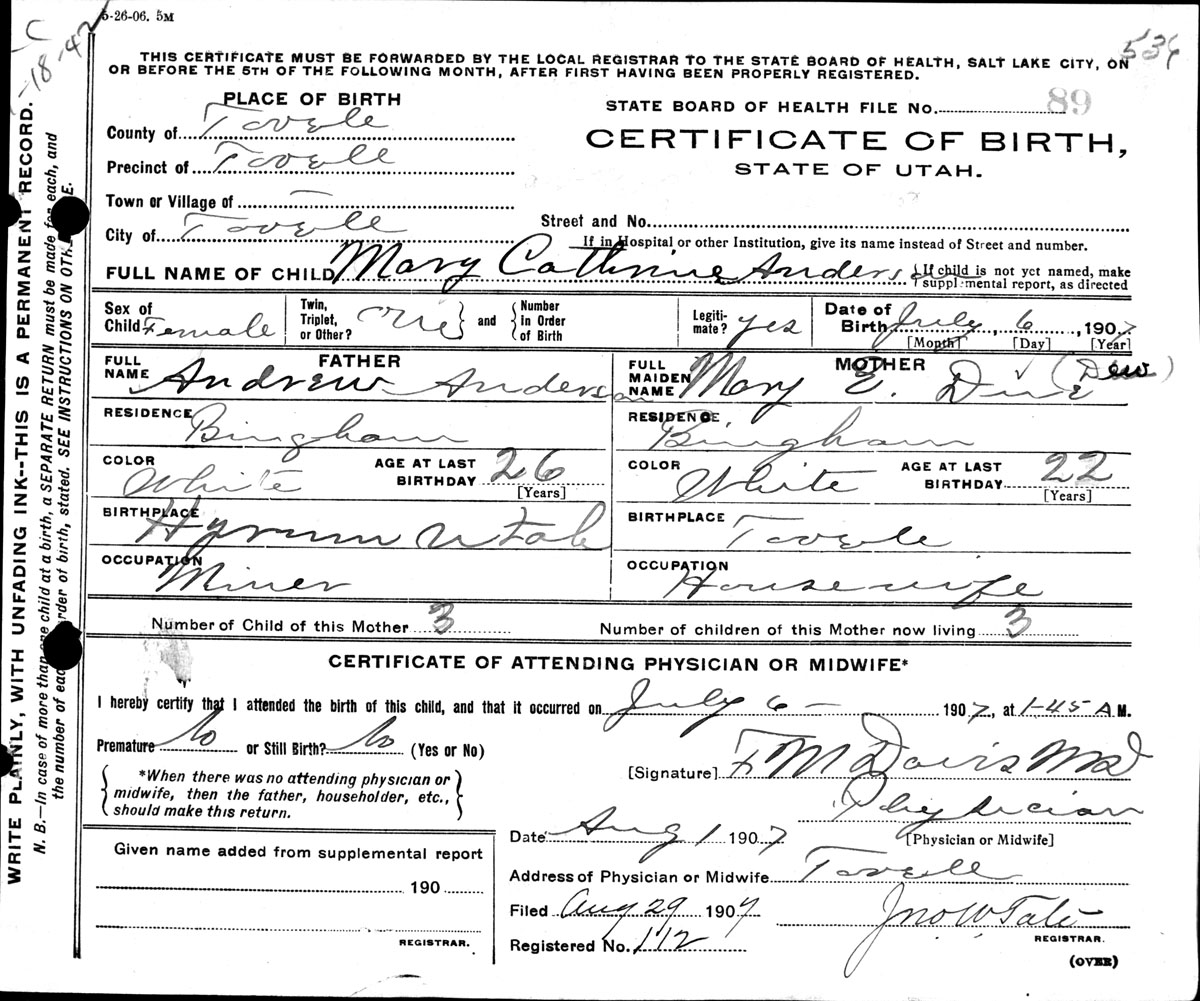 5-26-06. 5M
C
-18-42
536
THIS CERTIFICATE MUST BE FORWARDED BY THE LOCAL REGISTRAR TO THE STATE BOARD OF HEALTH, SALT LAKE CITY, ON
OR BEFORE THE 5TH OF THE FOLLOWING MONTH, AFTER FIRST HAVING BEEN PROPERLY REGISTERED.
WRITE PLAINLY, WITH UNFADING INK--THIS IS A PERMANENT RECORD.
N. B.—In case of more than one child at a birth, a SEPARATE RETURN must be made for each, and
the number of each order of birth, stated. SEE INSTRUCTIONS ON
PLACE OF BIRTH
STATE BOARD OF HEALTH FILE No. 89
County of Tooele
CERTIFICATE OF BIRTH,
Precinct of Tooele
STATE OF UTAH.
Town or Village of —
Street and No.
City of Tooele
If in Hospital or other Institution, give its name instead of Street and number.
FULL NAME OF CHILD Mary Cathrine Anderson
{If child is not yet named, make
supplemental report, as directed
Sex of Child Female
Twin, Triplet, or Other? one } and { Number In Order of Birth
Legiti-mate? yes
Date of Birth July, 6, 1907
[Month] [Day] [Year]
FATHER
MOTHER
FULL NAME Andrew Anderson
FULL MAIDEN NAME Mary E. Due (Dew)
RESIDENCE Bingham
RESIDENCE Bingham
COLOR White AGE AT LAST BIRTHDAY 26 [Years]
COLOR White AGE AT LAST BIRTHDAY 22 [Years]
BIRTHPLACE Hyrum Utah
BIRTHPLACE Tooele
OCCUPATION Miner
OCCUPATION Housewife
Number of Child of this Mother 3
Number of children of this Mother now living 3
CERTIFICATE OF ATTENDING PHYSICIAN OR MIDWIFE*
I hereby certify that I attended the birth of this child, and that it occurred on July 6 — 1907, at 1-45 A M.
Premature No or Still Birth? No (Yes or No)
[Signature] F M Davis MD
{ *When there was no attending physician or
midwife, then the father, householder, etc.,
should make this return. }
Physician
[Physician or Midwife]
Date Aug 1 1907
Given name added from supplemental report
190
REGISTRAR.
Address of Physician or Midwife Tooele
Filed Aug 29 1907 Jno W Tate
REGISTRAR.
Registered No. 112
(OVER)